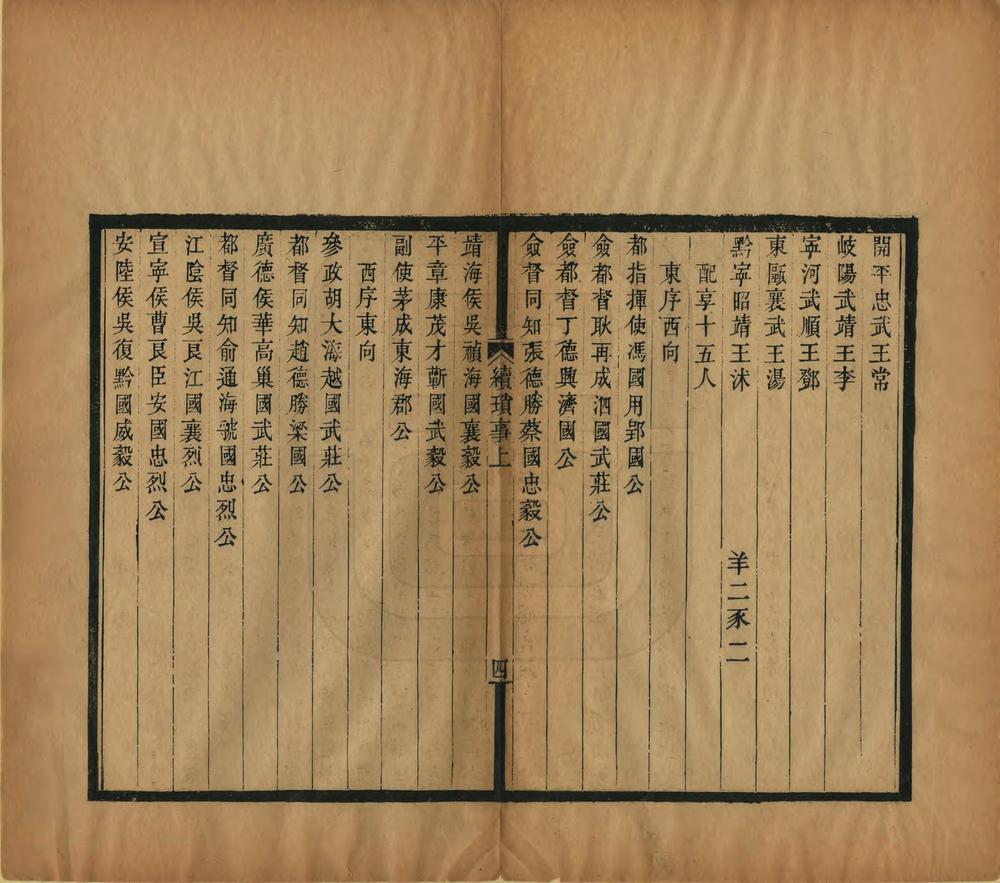 開平忠武王常
岐陽武靖王李
寧河武順王鄧
東甌襄武王湯
黔寧昭靖王沐　羊二豕二
配享十五人
東序西向
都指揮使馮國用郢國公
僉都督耿再成泗國武莊公
僉都督丁德興濟國公
僉督同知張德勝蔡國忠毅公
續瑣事上　四
靖海侯吳禎海國襄毅公
平章康茂才蘄國武毅公
副使茅成東海郡公
西序東向
參政胡大海越國武莊公
都督同知趙德勝梁國公
廣德侯華高巢國武莊公
都督同知俞通海虢國忠烈公
江陰侯吳良江國襄烈公
宣寧侯曹良臣安國忠烈公
安陸侯吳復黔國威毅公